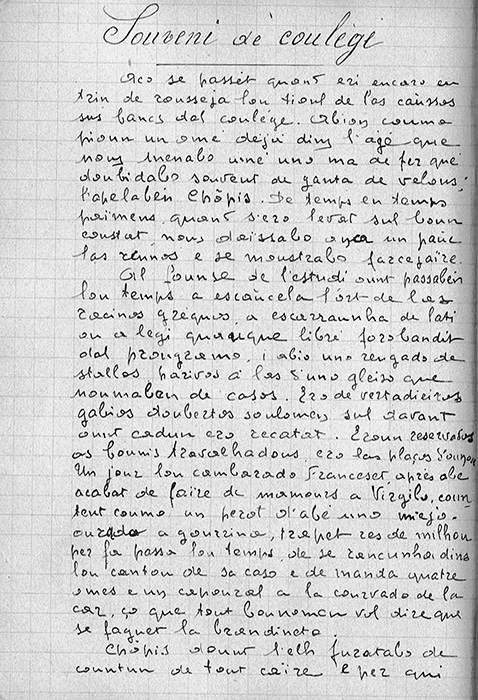 Souveni dé coulégi
Aco se passèt quant eri encaro en
trin de rousseja lou tioul de las caussos
sus bancs dal coulége. Abion coumo
pioun un ome déjà dins l'agé que
nous menabo amé uno ma de fer que
doubidabo souvent de ganta de velous;
l'apelaben Chòpis. De temps en temps
paimens, quant s'ero levat sul boun
coustat, nous daissabo un pauc
las rennos e se moustrabo farcejaire.
Al founse de l'estudi ount passaben
lou temps a escancela l'ort de las
racinos grèquos, a escarraunha de lati
ou a legi quauque libré forobandit
dal prougramo, i abio uno rengado de
stallos parivos à las d'uno gleiso que
noumaben de casos. Ero de vertadieiros
gabios doubertos soulomen sul davant
ount cadun ero recatat. Eroun reservados
as bounis travalhadous, ero las plaços d'ounou
Un jour lou cambarado Franceset, après abe
acabat de faire de mamours a Virgilo, coun-
tent coumo un perot d'abé uno miejo-
ourado a gourrina, trapèt res de milhou
per fa passa lou temps, de se rancunha dins
lou cantou de sa caso e de manda quatre
omes e un capoural a la courvado de la
car, ço que tout bounomen vol dire que
se faguèt la brandineto.
Chòpis dount l'elh furatabo de
countun de tout caire e per qui